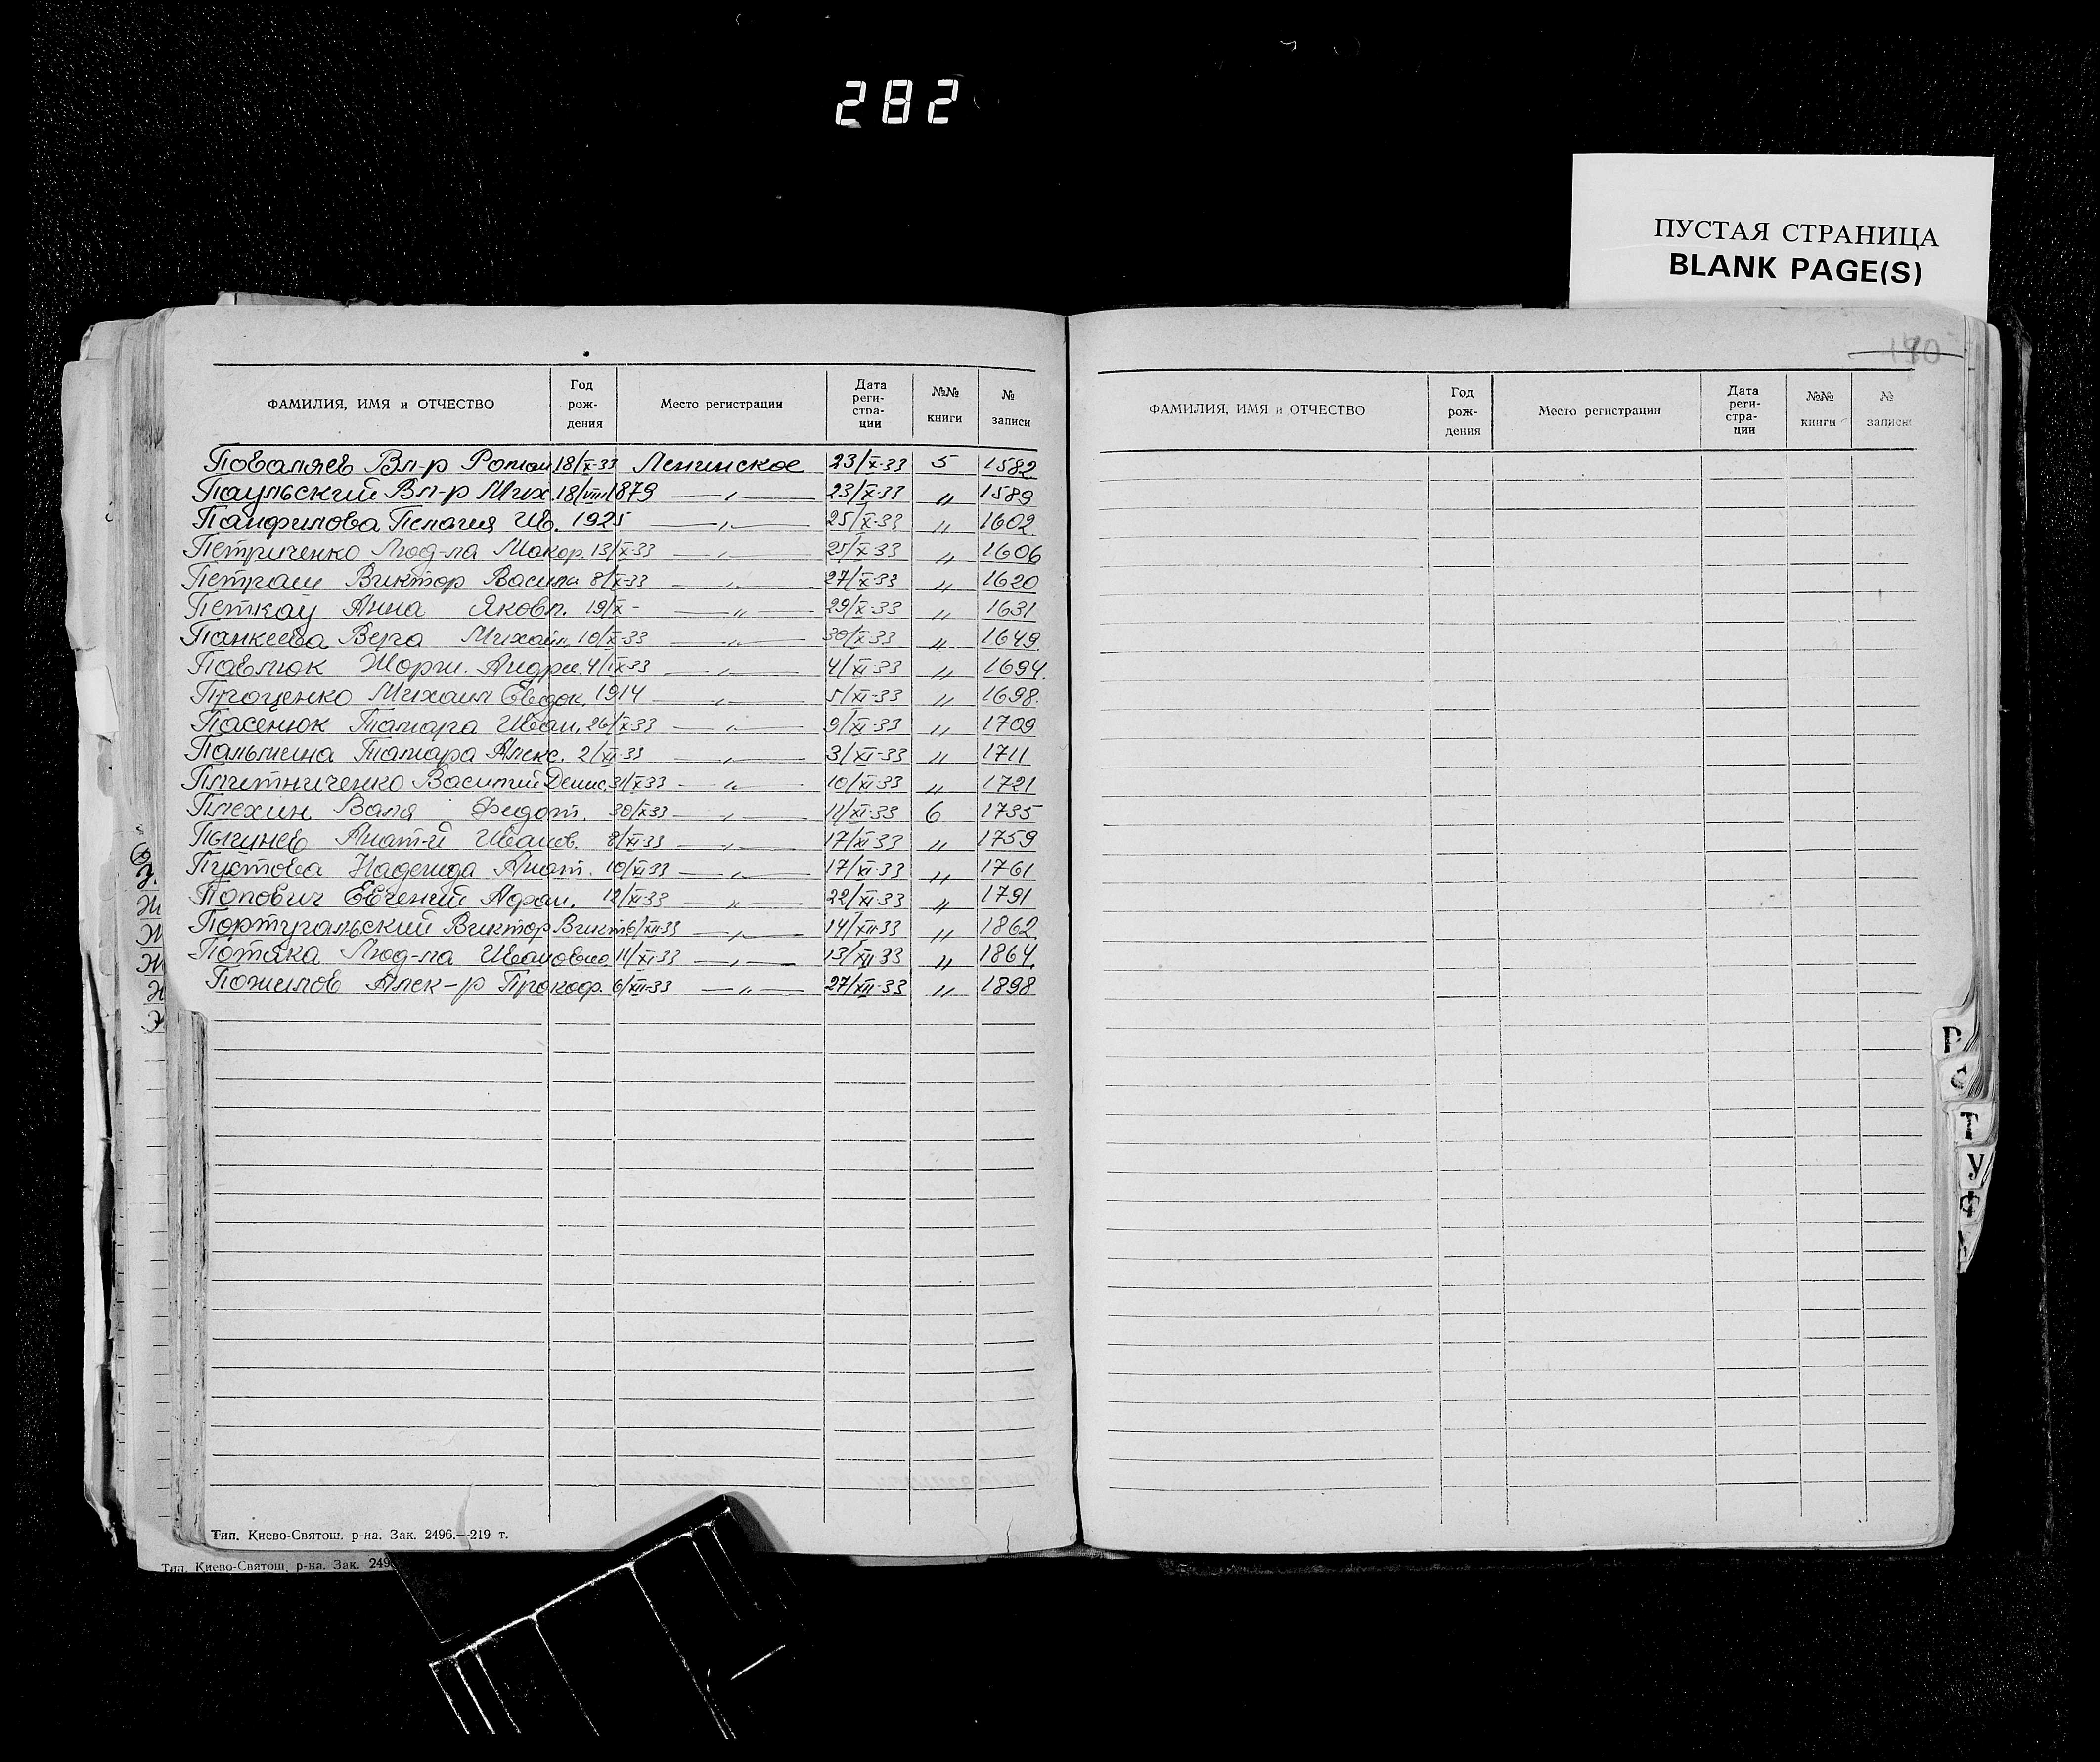 282
ПУСТАЯ СТРАНИЦА
BLANK PAGE(S)
190
ФАМИЛИЯ, ИМЯ и ОТЧЕСТВО Год рож- дения Место регистрации Дата реги- стра- ции №№ книги № записи
Поваляев Вл-р Роман 18/X-33 Ленинское 23/X-33 5 1582
Паульский Вл-р Мих. 18/VIII 1879 —〃— 23/X-33 〃 1589
Панфилова Пелагия Ив. 1925 —〃— 25/X-33 〃 1602
Петриченко Люд-ла Макар. 13/X-33 —〃— 25/X-33 〃 1606
Петраш Виктор Васили 8/X-33 —〃— 27/X-33 〃 1620
Петкау Анна Яковл. 19/X- —〃— 29/X-33 〃 1631
Панкеева Вера Михайл. 10/X-33 —〃— 30/X-33 〃 1649
Павлюк Жорж. Андре. 4/IX-33 —〃— 4/XI-33 〃 1694.
Проценко Михаил Евдок. 1914 —〃— 5/XI-33 〃 1698.
Пасенюк Тамара Иван. 26/X-33 —〃— 9/XI-33 〃 1709
Пальмина Тамара Алекс. 2/XI-33 —〃— 3/XI-33 〃 1711
Плитниченко Василий Денис. 31/X-33 —〃— 10/XI-33 〃 1721
Плехин Валя Федот. 30/X-33 —〃— 11/XI-33 6 1735
Анат-й Иванов. 8/XI-33 —〃— 17/XI-33 〃 1759
Пустова Надежда Анат. 10/XI-33 —〃— 17/XI-33 〃 1761
Попович Евгений Афан. 12/XI-33 —〃— 22/XI-33 〃 1791
Португальский Виктор Викт. 6/XII-33 —〃— 14/XII-33 〃 1862
Потяка Люд-ла Ивановна 11/XI-33 —〃— 13/XII-33 〃 1864.
Пожилов Алек-р Прокоф. 6/XII-33 —〃— 27/XII-33 〃 1898
Тип. Киево-Святош. р-на. Зак. 2496.—219 т.
Тип. Киево-Святош. р-на. Зак. 249
ФАМИЛИЯ, ИМЯ и ОТЧЕСТВО Год рож- дения Место регистрации Дата реги- стра- ции №№ книги № записи
Р
С
Т
У
Ф